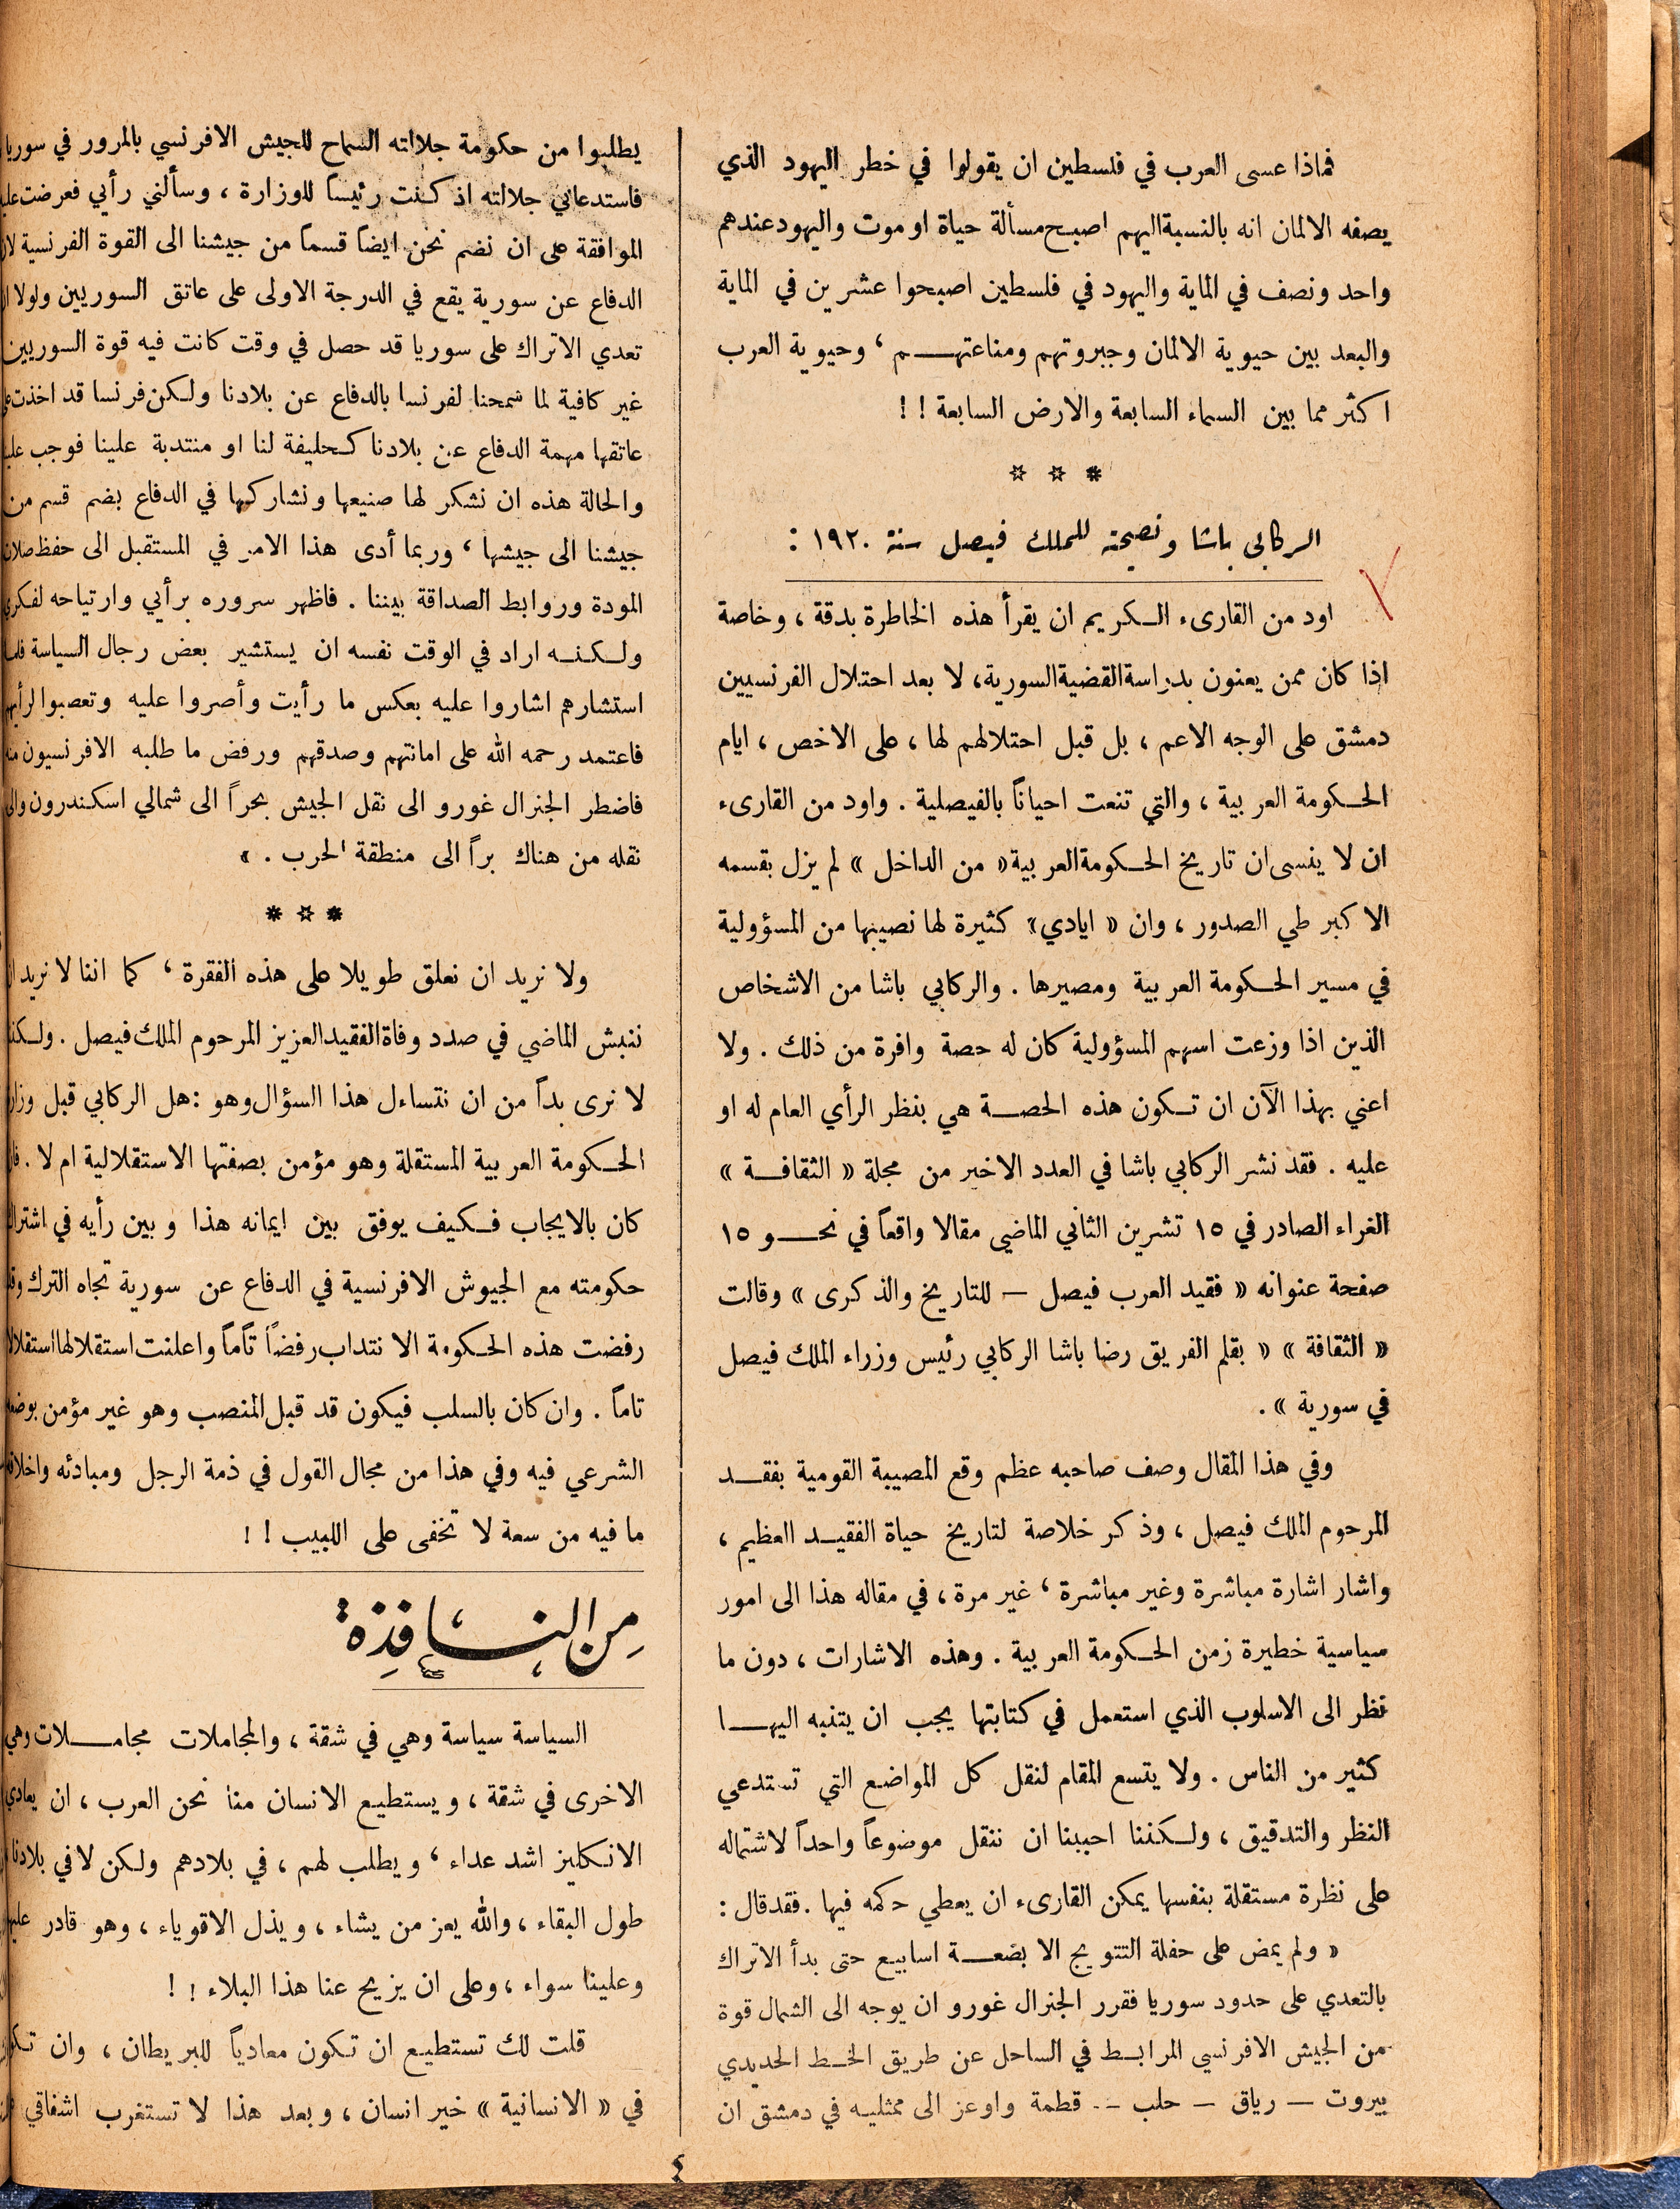 فماذا عسى العرب في فلسطين ان يقولوا في خطر اليهود الذي
يصفه الالمان انه بالنسبة اليهم اصبح مسألة حياة او موت واليهود عندهم
واحد ونصف في الماية واليهود في فلسطين اصبحوا عشرين في الماية
والبعد بين حيوية الالمان وجبروتهم ومناعتهم ، وحيوية العرب
اكثر مما بين السماء السابعة والارض السابعة ! !
* * *
الركابي باشا ونصيحته للملك فيصل سنة ١٩٢٠ :
اود من القارىء الكريم ان يقرأ هذه الخاطرة بدقة ، وخاصة
اذا كان ممن يعنون بدراسة القضية السورية ، لا بعد احتلال الفرنسيين
دمشق على الوجه الاعم ، بل قبل احتلالهم لها ، على الاخص ، ايام
الحكومة العربية ، والتي تنعت احياناً بالفيصلية . واود من القارىء
ان لا ينسى ان تاريخ الحكومة العربية « من الداخل » لم يزل بقسمه
الاكبر طي الصدور ، وان « ايادي » كثيرة لها نصيبها من المسؤولية
في مسير الحكومة العربية ومصيرها . والركابي باشا من الاشخاص
الذين اذا وزعت اسهم المسؤولية كان له حصة وافرة من ذلك . ولا
اعني بهذا الآن ان تكون هذه الحصة هي بنظر الرأي العام له او
عليه . فقد نشر الركابي باشا في العدد الاخير من مجلة « الثقافة »
الغراء الصادر في ١٥ تشرين الثاني الماضي مقالا واقعاً في نحو ١٥
صفحة عنوانه « فقيد العرب فيصل — للتاريخ والذكرى » وقالت
« الثقافة » « بقلم الفريق رضا باشا الركابي رئيس وزراء الملك فيصل
في سورية » .
وفي هذا المقال وصف صاحبه عظم وقع المصيبة القومية بفقد
المرحوم الملك فيصل ، وذكر خلاصة لتاريخ حياة الفقيد العظيم ،
واشار اشارة مباشرة وغير مباشرة ، غير مرة ، في مقاله هذا الى امور
سياسية خطيرة زمن الحكومة العربية . وهذه الاشارات ، دون ما
نظر الى الاسلوب الذي استعمل في كتابتها يجب ان يتنبه اليها
كثير من الناس . ولا يتسع المقام لنقل كل المواضع التي تستدعي
النظر والتدقيق ، ولكننا احببنا ان ننقل موضوعاً واحداً لاشتماله
على نظرة مستقلة بنفسها يمكن القارىء ان يعطي حكمه فيها . فقد قال :
« ولم يمض على حفلة التتويج الا بضعة اسابيع حتى بدأ الاتراك
بالتعدي على حدود سوريا فقرر الجنرال غورو ان يوجه الى الشمال قوة
من الجيش الافرنسي المرابط في الساحل عن طريق الخط الحديدي
بيروت — رياق — حلب — قطمة واوعز الى ممثليه في دمشق ان
يطلبوا من حكومة جلالته السماح للجيش الافرنسي بالمرور في سوريا
فاستدعاني جلالته اذ كنت رئيساً للوزارة ، وسألني رأيي فعرضت
الموافقة على ان نضم نحن ايضاً قسماً من جيشنا الى القوة الفرنسية لان
الدفاع عن سورية يقع في الدرجة الاولى على عاتق السوريين ولولا
تعدي الاتراك على سوريا قد حصل في وقت كانت فيه قوة السوريين
غير كافية لما سمحنا لفرنسا بالدفاع عن بلادنا ولكن فرنسا قد اخذت
عاتقها مهمة الدفاع عن بلادنا كحليفة لنا او منتدبة علينا فوجب
والحالة هذه ان نشكر لها صنيعها ونشاركها في الدفاع بضم قسم من
جيشنا الى جيشها ، وربما أدى هذا الامر في المستقبل الى حفظ
المودة وروابط الصداقة بيننا . فاظهر سروره برأيي وارتياحه
ولكنه اراد في الوقت نفسه ان يستشير بعض رجال السياسة فلما
استشارهم اشاروا عليه بعكس ما رأيت وأصروا عليه وتعصبوا لرأيهم
فاعتمد رحمه الله على امانتهم وصدقهم ورفض ما طلبه الافرنسيون منه
فاضطر الجنرال غورو الى نقل الجيش بحراً الى شمالي اسكندرون
نقله من هناك براً الى منطقة الحرب . »
* * *
ولا نريد ان نعلق طويلا على هذه الفقرة ، كما اننا لا نريد
ننبش الماضي في صدد وفاة الفقيد العزيز المرحوم الملك فيصل .
لا نرى بداً من ان نتساءل هذا السؤال وهو : هل الركابي قبل
الحكومة العربية المستقلة وهو مؤمن بصفتها الاستقلالية ام لا .
كان بالايجاب فكيف يوفق بين ايمانه هذا وبين رأيه في
حكومته مع الجيوش الافرنسية في الدفاع عن سورية تجاه الترك
رفضت هذه الحكومة الانتداب رفضاً تاماً واعلنت استقلالها
تاماً . وان كان بالسلب فيكون قد قبل المنصب وهو غير مؤمن
الشرعي فيه وفي هذا من مجال القول في ذمة الرجل ومبادئه
ما فيه من سعة لا تخفى على اللبيب ! !
من النافذة
السياسة سياسة وهي في شقة ، والمجاملات مجاملات وهي
الاخرى في شقة ، ويستطيع الانسان منا نحن العرب ، ان يعادي
الانكليز اشد عداء ، ويطلب لهم ، في بلادهم ولكن لا في بلادنا
طول البقاء ، والله يعز من يشاء ، ويذل الاقوياء ، وهو قادر
وعلينا سواء ، وعلى ان يزيح عنا هذا البلاء ! !
قلت لك تستطيع ان تكون معادياً للبريطان ، وان
في « الانسانية » خير انسان ، وبعد هذا لا تستغرب اشفاقي
٤